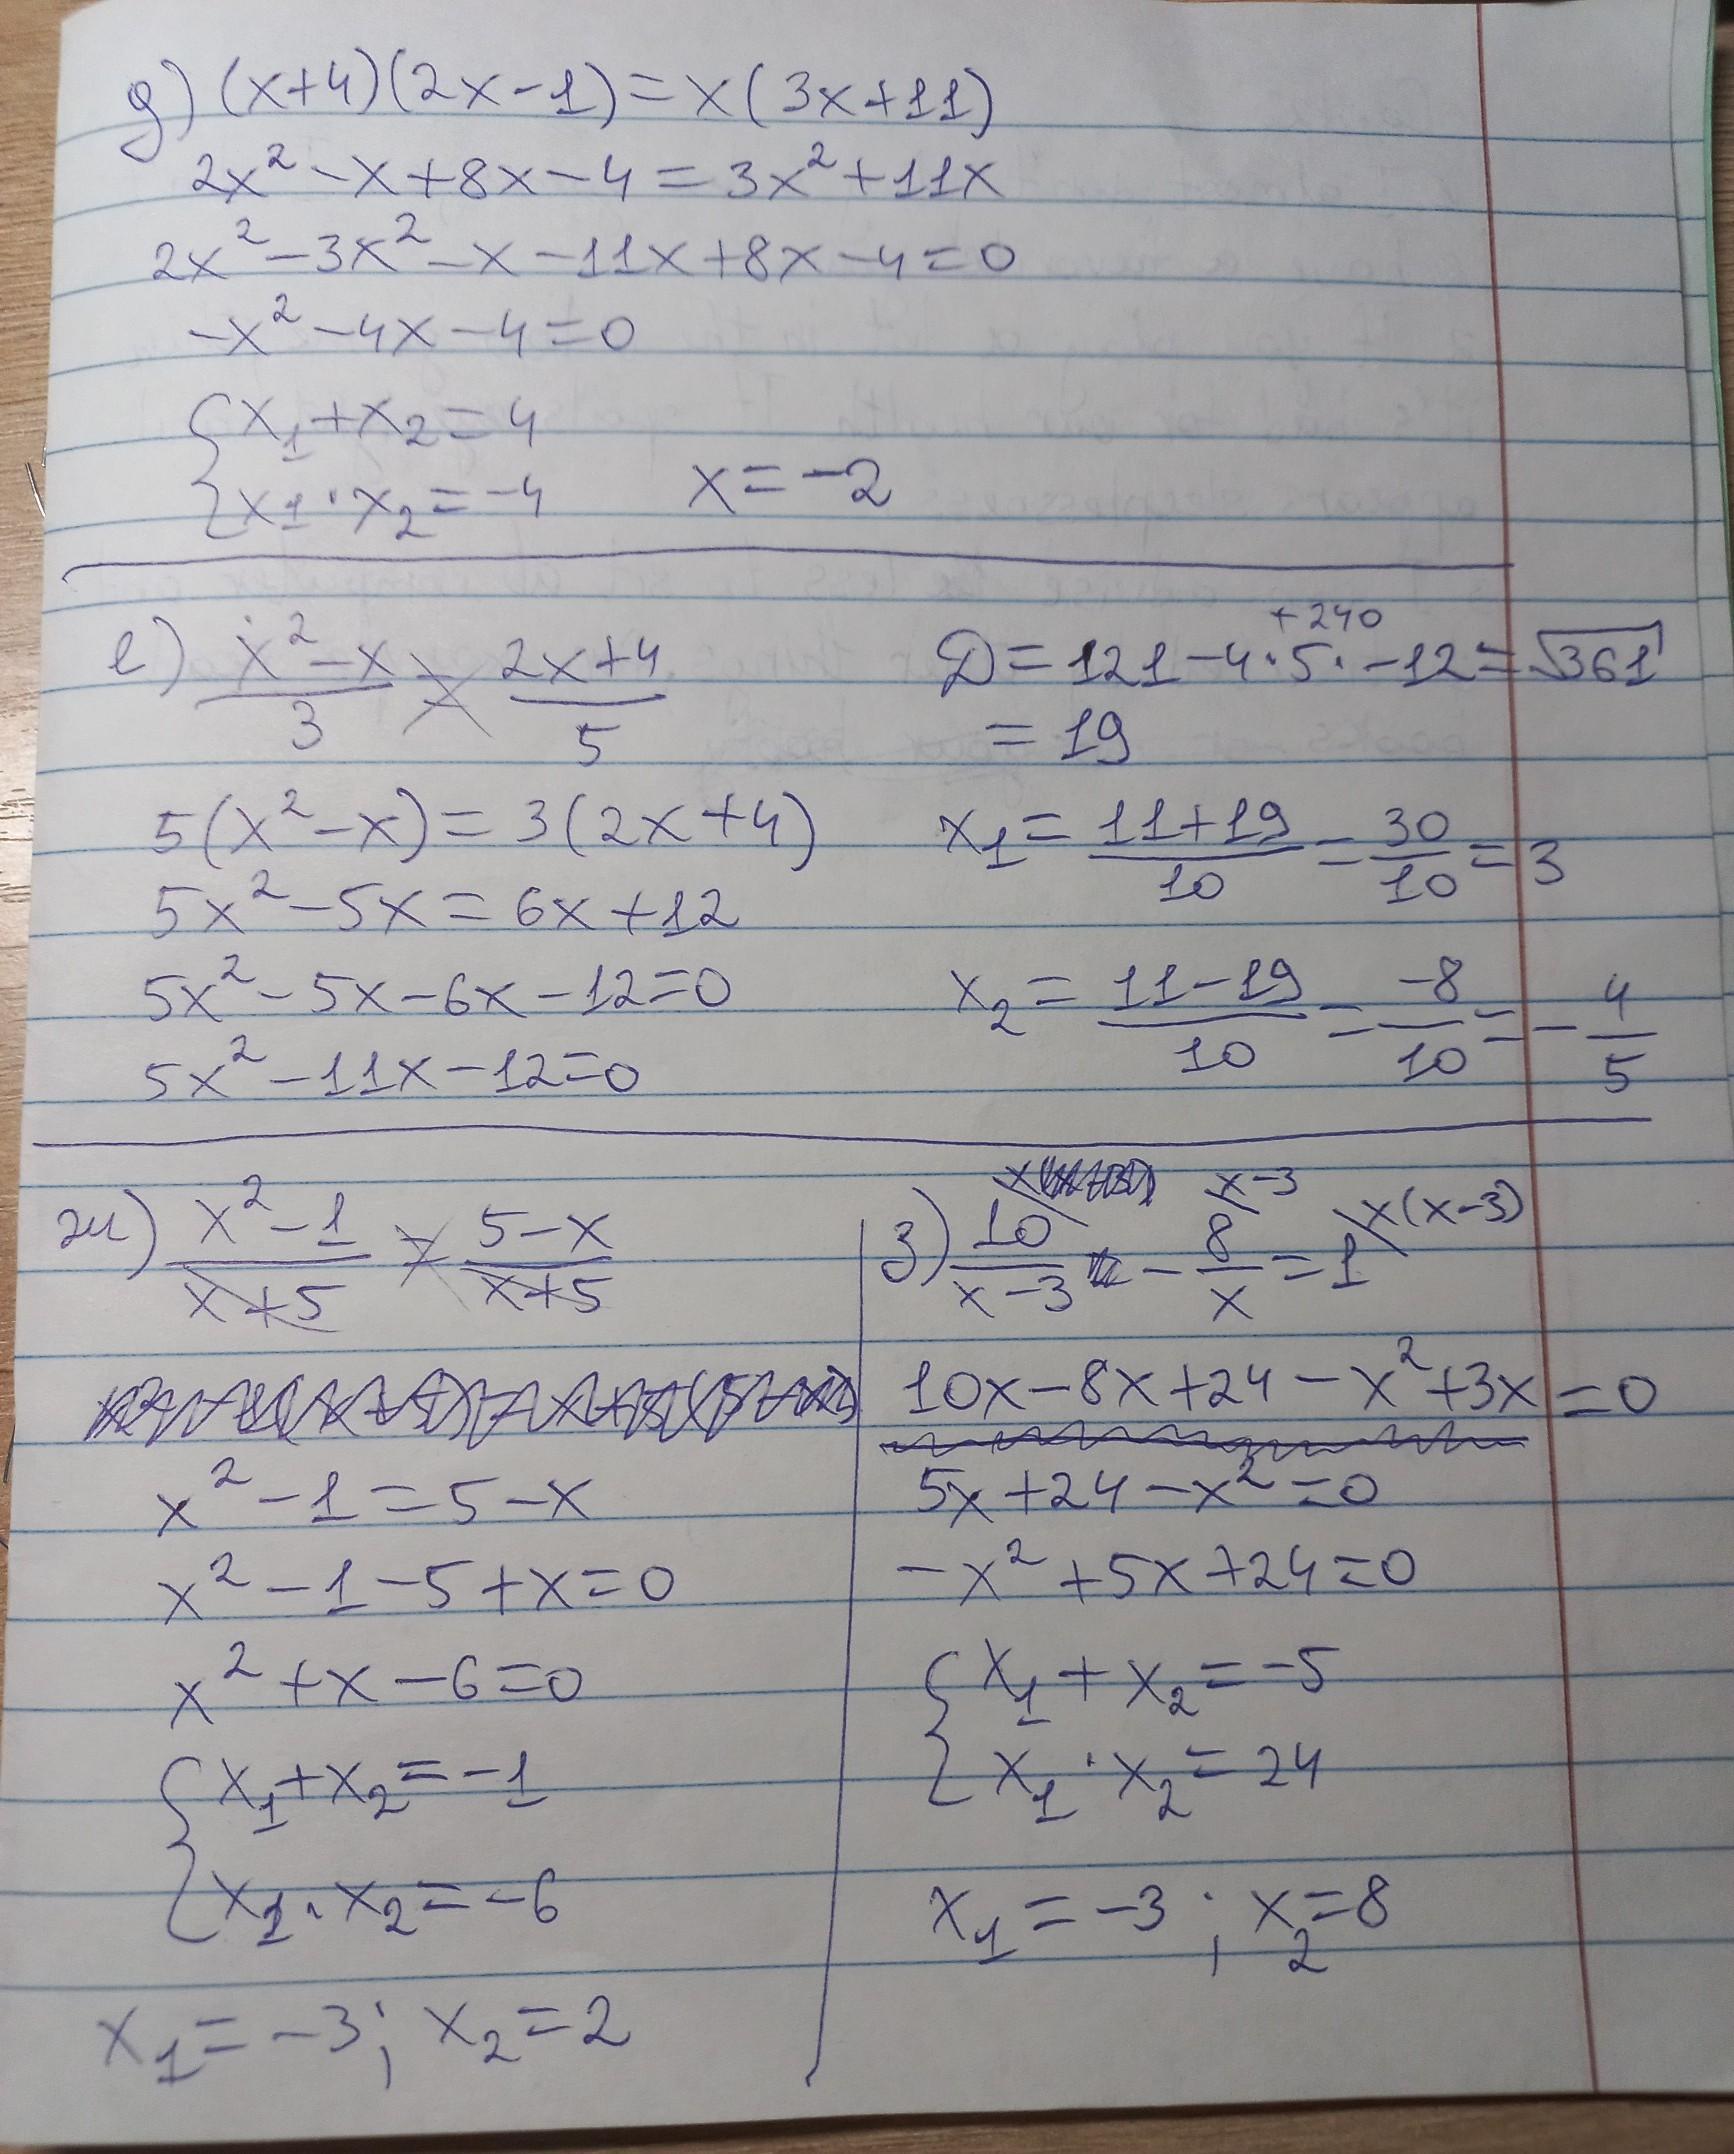 д) (x+4)(2x-1)=x(3x+11)
2x²-x+8x-4=3x²+11x
2x²-3x²-x-11x+8x-4=0
-x²-4x-4=0
{x₁+x₂=4
{x₁·x₂=-4
x=-2
е) (x²-x)/3 = (2x+4)/5
5(x²-x)=3(2x+4)
5x²-5x=6x+12
5x²-5x-6x-12=0
5x²-11x-12=0
+240
D=121-4·5·-12=√361
=19
x₁=(11+19)/10=30/10=3
x₂=(11-19)/10=-8/10=-4/5
ж) (x²-1)/(x+5) = (5-x)/(x+5)
x²-1=5-x
x²-1-5+x=0
x²+x-6=0
{x₁+x₂=-1
{x₁·x₂=-6
x₁=-3; x₂=2
x x-3 x(x-3)
з) 10/(x-3) - 8/x = 1
10x-8x+24-x²+3x=0
5x+24-x²=0
-x²+5x+24=0
{x₁+x₂=-5
{x₁·x₂=24
x₁=-3; x₂=8